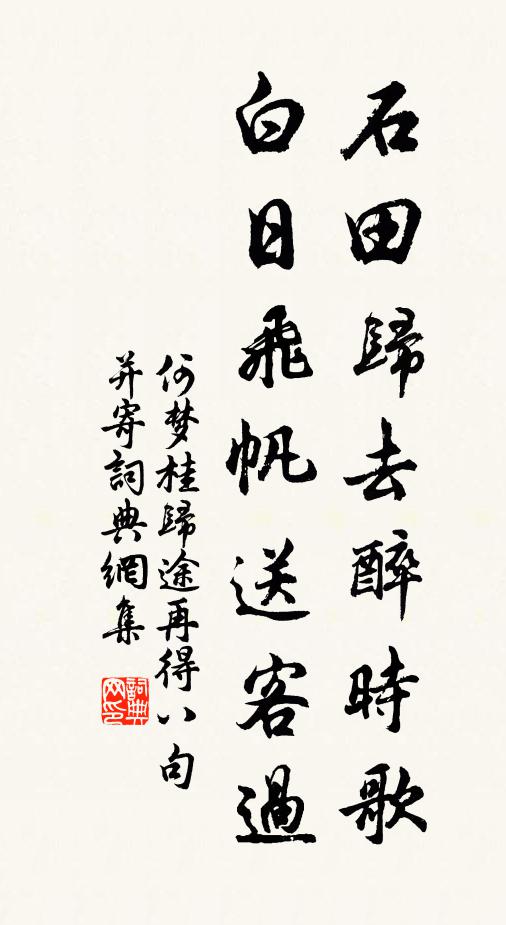 石田歸去醉時歌
白日飛帆送客過
何梦桂歸途再得八句
并寄詞典網集
詞典网印